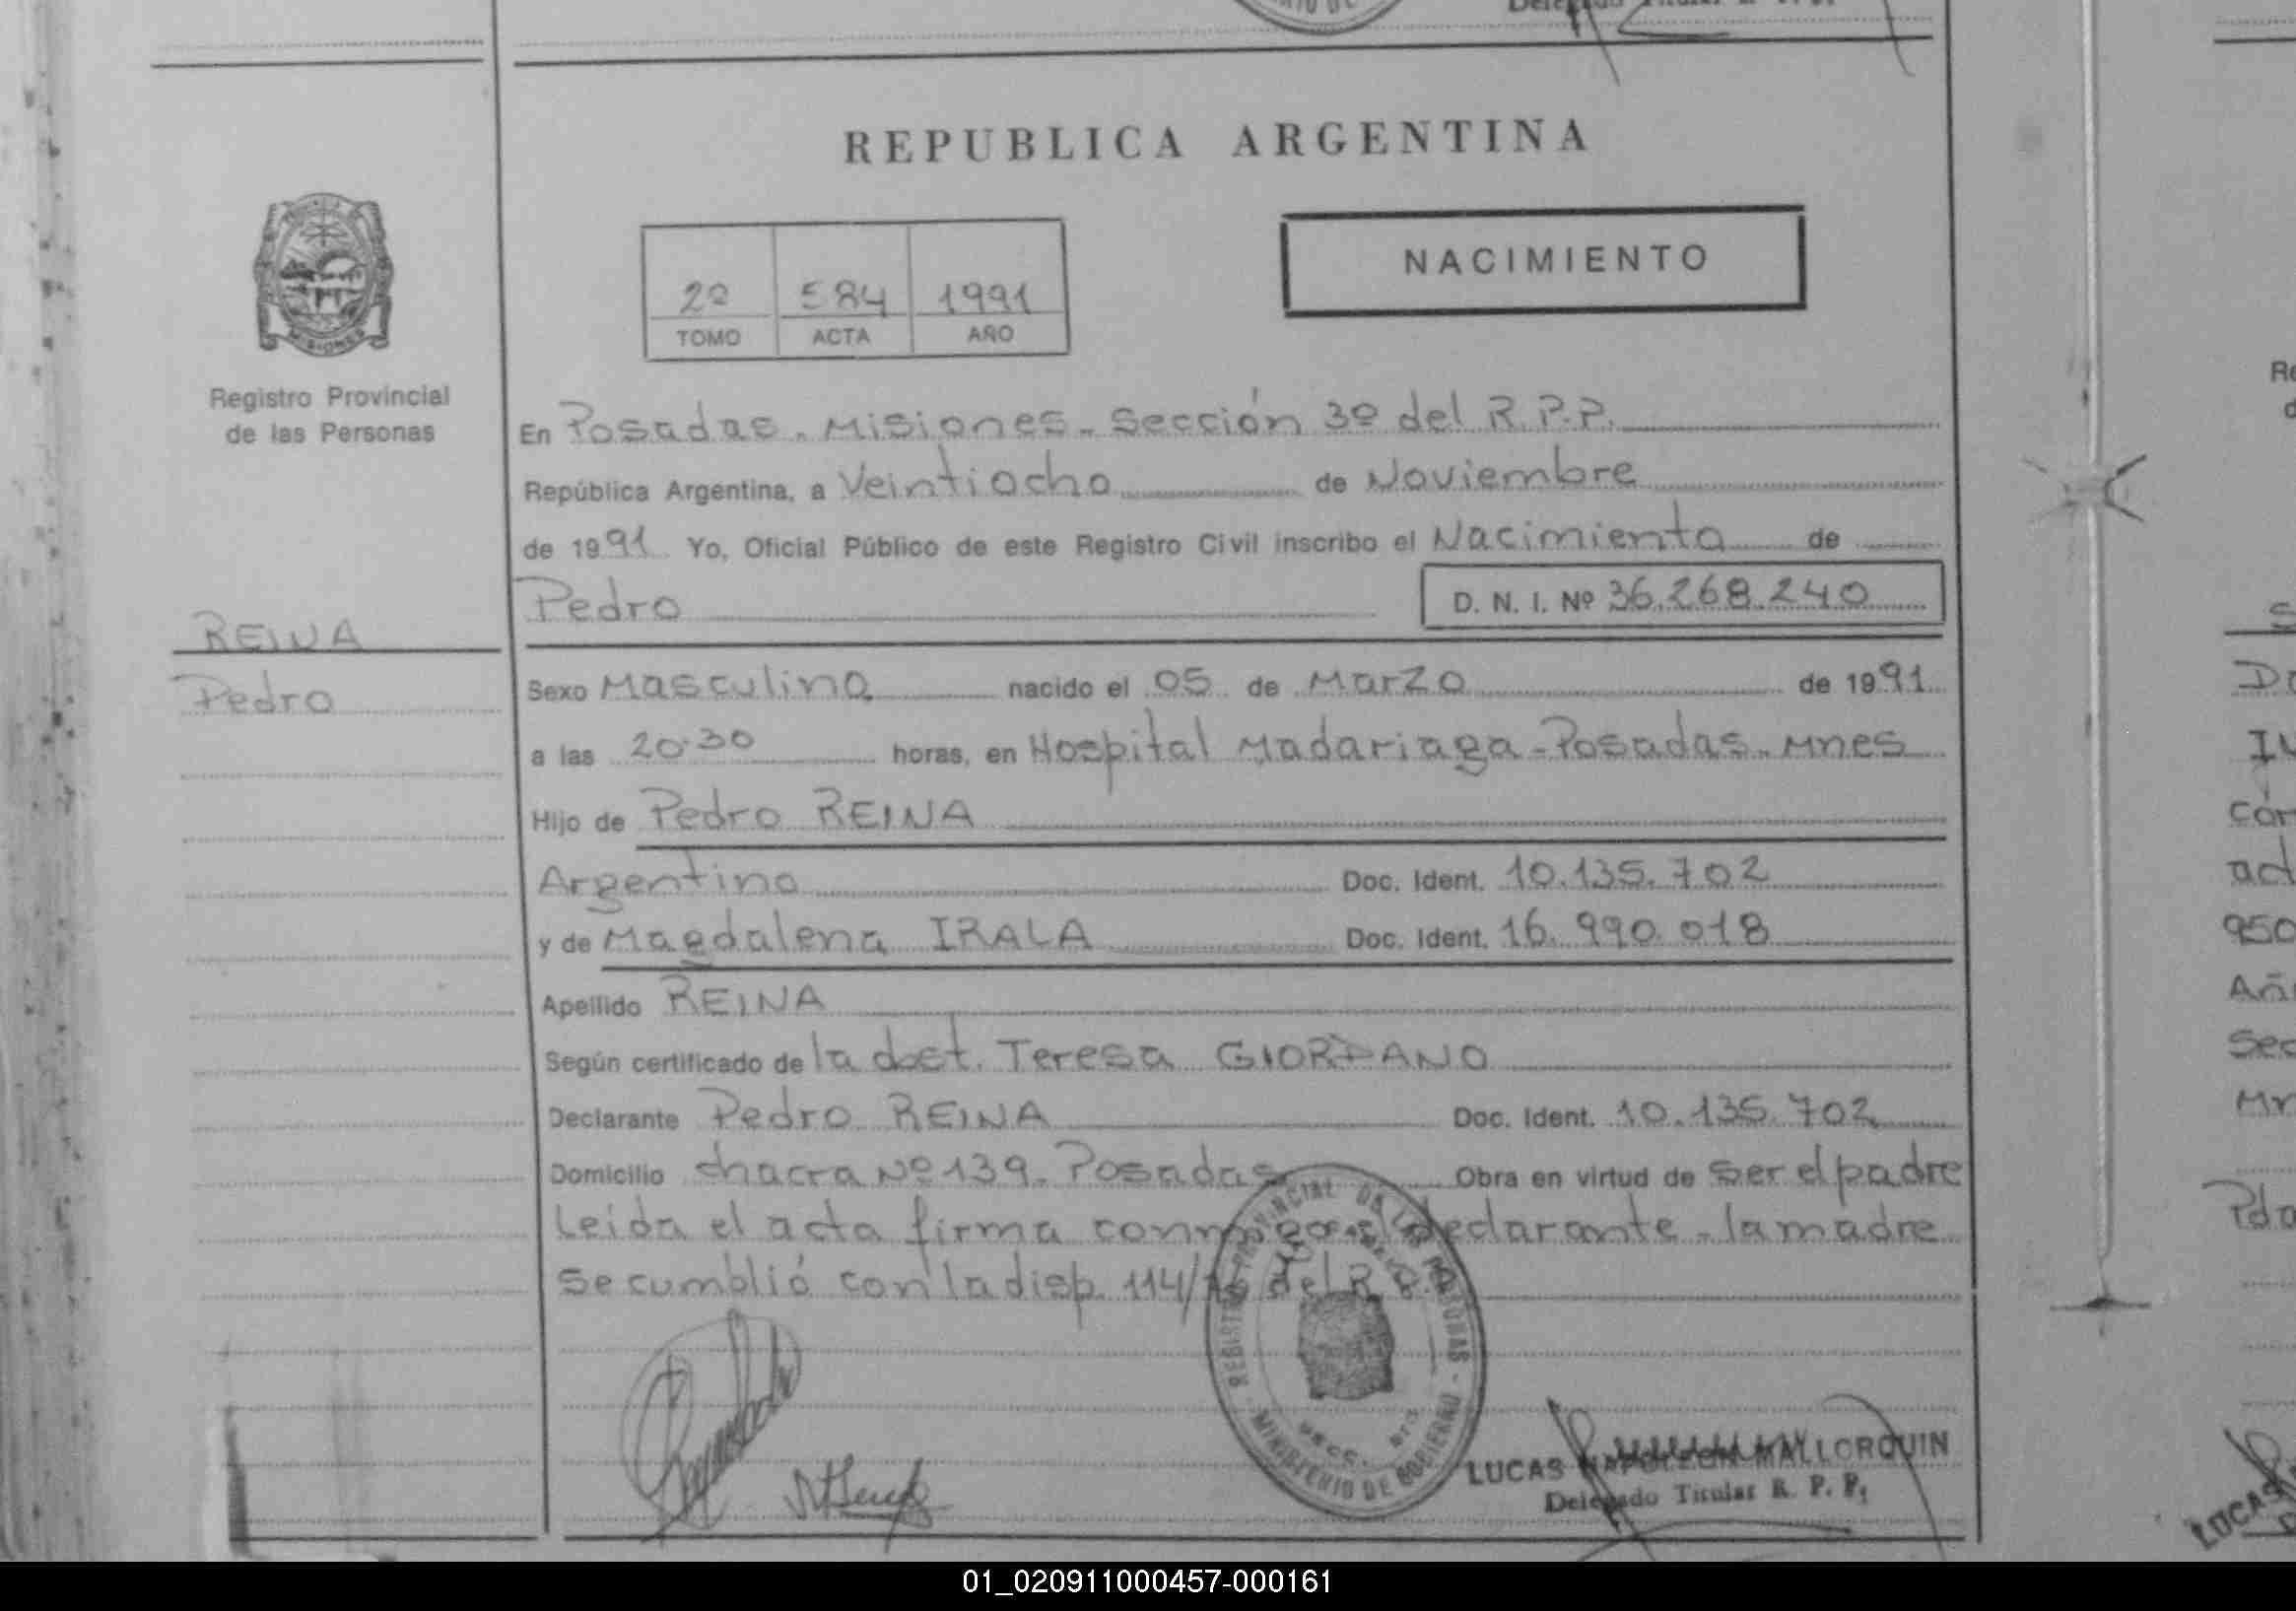 REPUBLICA ARGENTINA
NACIMIENTO
2º 584 1991
TOMO ACTA AÑO
MISIONES
Registro Provincial
de las Personas
REINA
Pedro
En Posadas. Misiones. Sección 3º del R.P.P.
República Argentina, a Veintiocho de Noviembre
de 1991 Yo, Oficial Público de este Registro Civil inscribo el Nacimiento de
Pedro D. N. I. Nº 36.268.240
Sexo Masculino nacido el 05 de Marzo de 1991
a las 20.30 horas, en Hospital Madariaga - Posadas - Mnes
Hijo de Pedro REINA
Argentino Doc. Ident. 10.135.702
y de Magdalena IRALA Doc. Ident. 16.990.018
Apellido REINA
Según certificado de la obst. Teresa GIORDANO
Declarante Pedro REINA Doc. Ident. 10.135.702
Domicilio chacra Nº 139. Posadas Obra en virtud de ser el padre
Leida el acta firma conmigo el declarante - la madre
Se cumplió con la disp. 114/ del R.P.
REGISTRO PROVINCIAL DE LAS PERSONAS
MINISTERIO DE GOBIERNO
LUCAS NAPOLEON MALLORQUIN
Delegado Titular R. P. P.
01_020911000457-000161